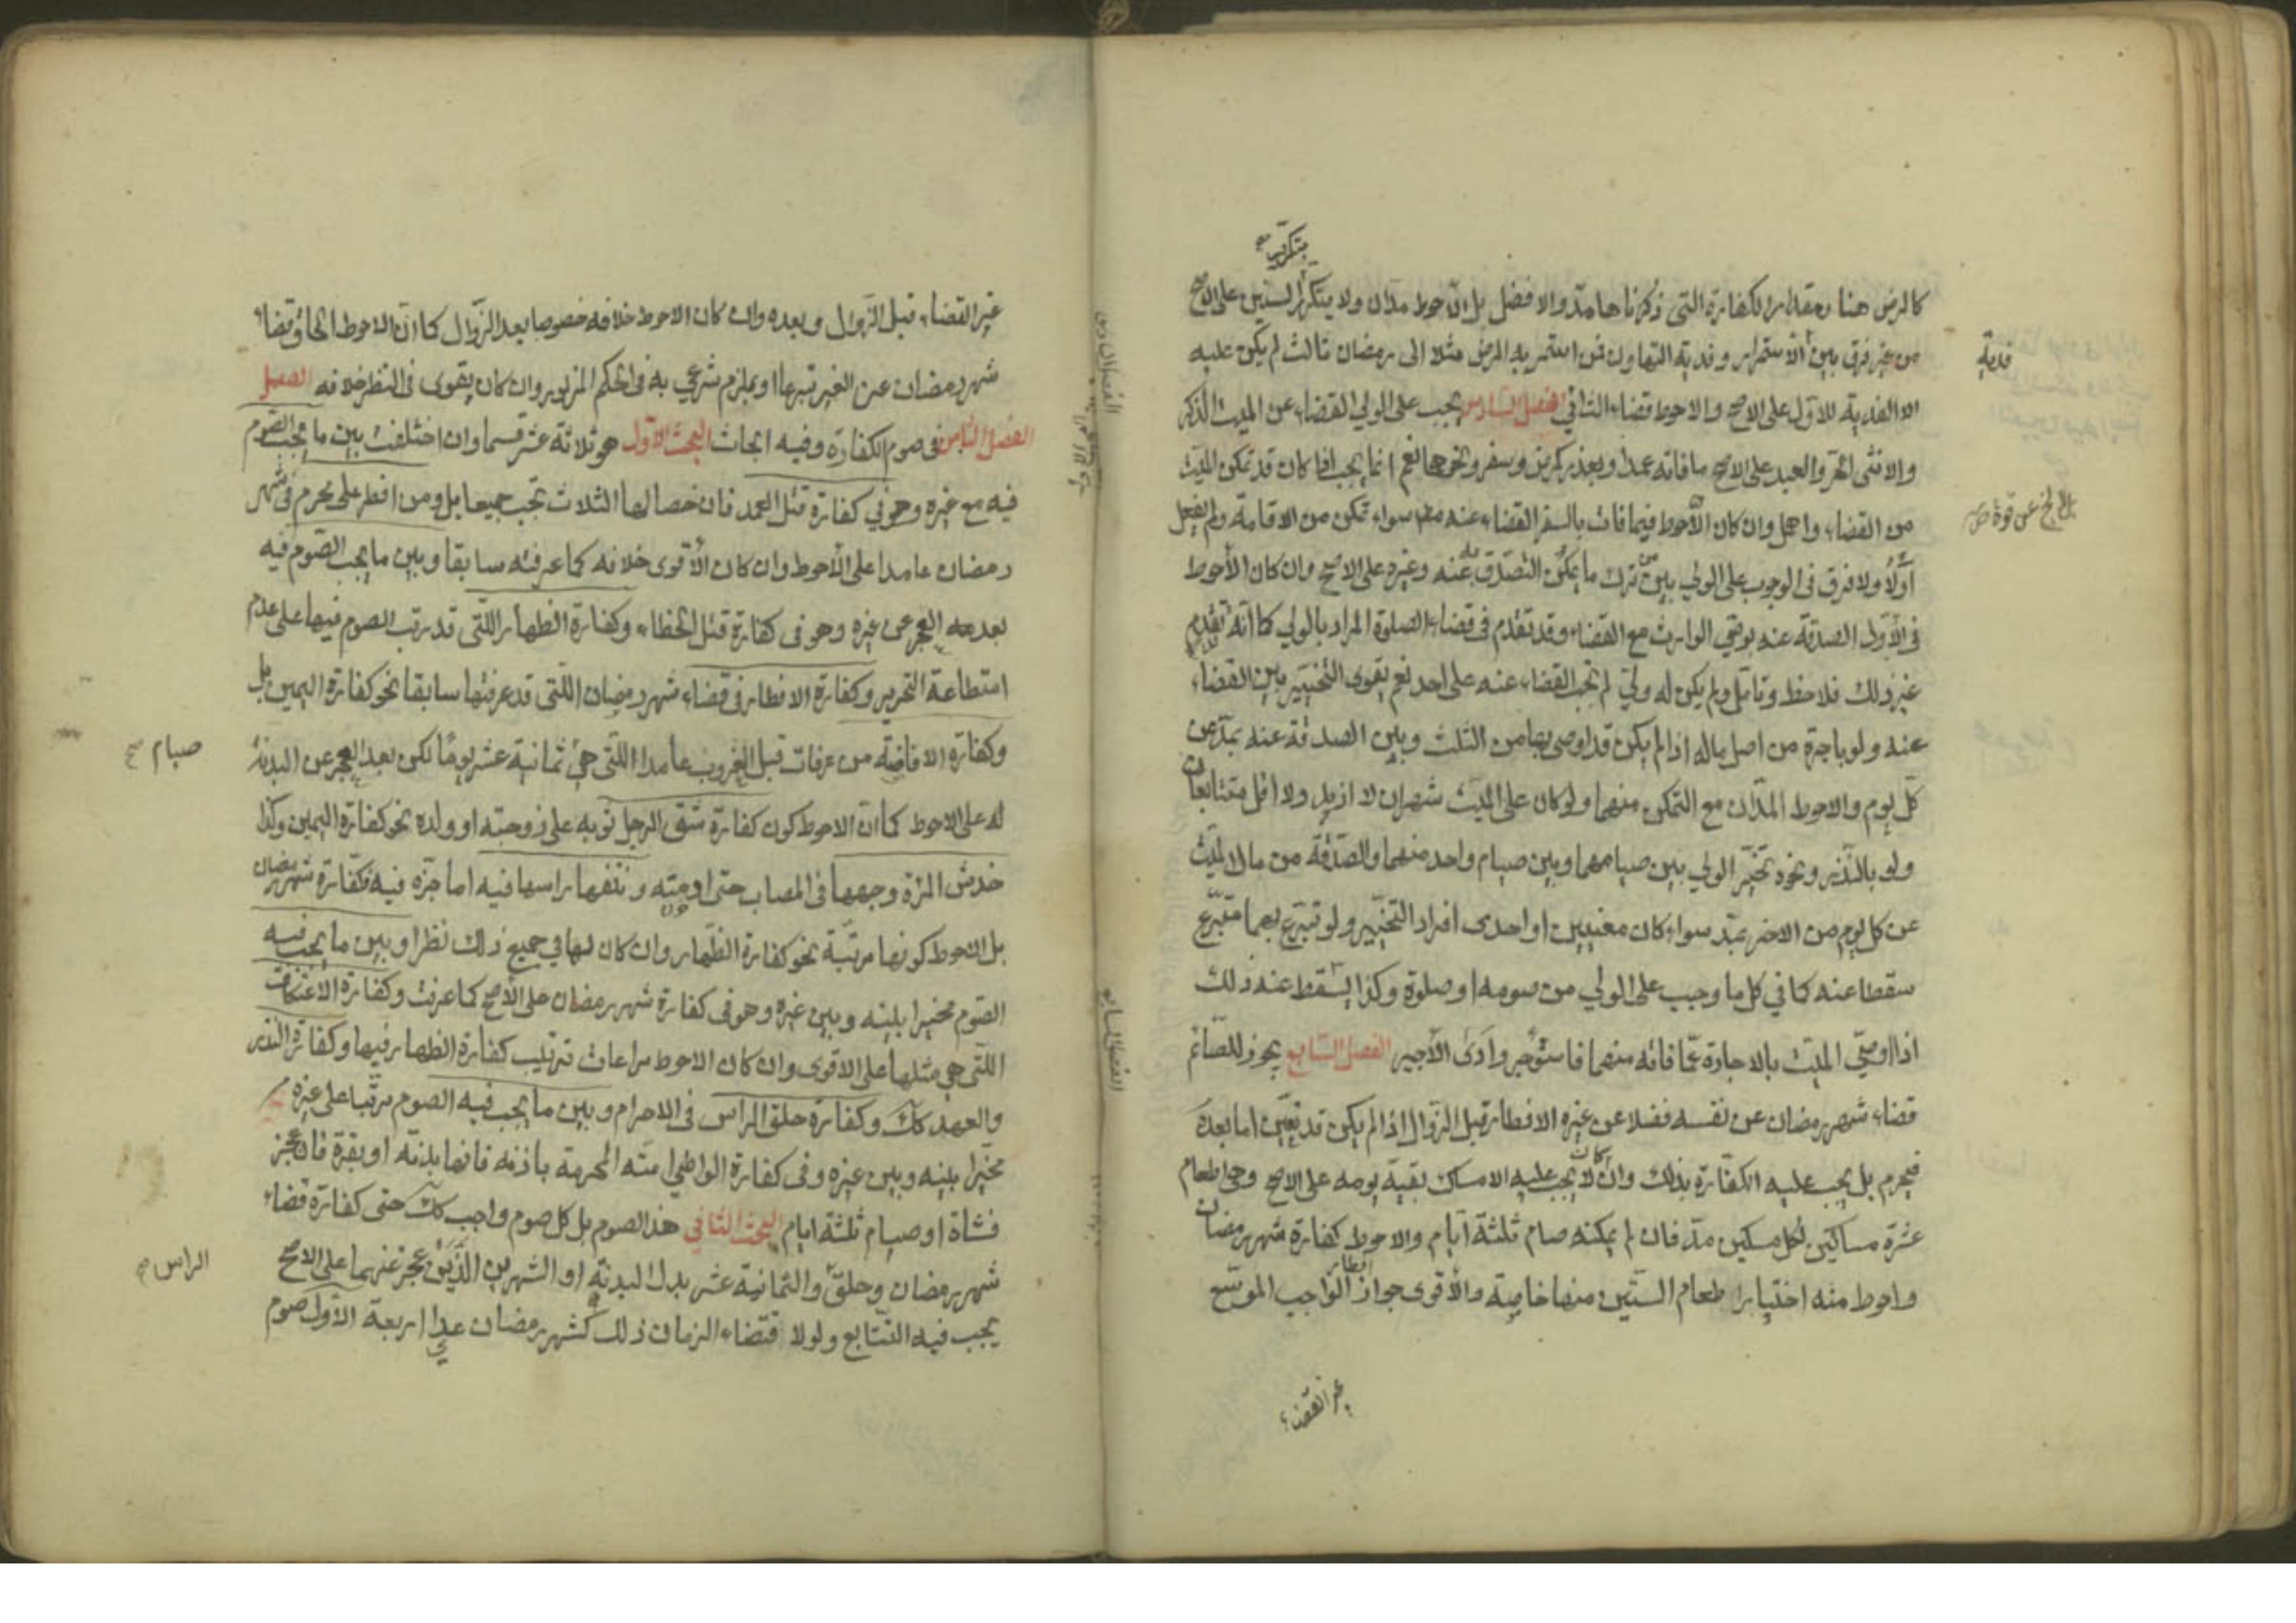 بتكرر صح
كالمرض هنا ومقدار الكفارة التي ذكرناها مد والافضل بل الاحوط مدان ولا يتكرر السنين على الاصح
من غير فرق بين الاستمرار وفدية التهاون فمن استمر به المرض مثلا الى رمضان ثالث لم يكن عليه
فدية
الا الفدية للاول على الاصح والاحوط قضاء الثاني الفصل السادس يجب على الولي القضاء عن الميت الذكر
والانثى الحر والعبد على الاصح ما فاته عمدا وبعذر كمرض وسفر ونحوهما نعم انما يجب اذا كان قد تمكن الميت
من القضاء واهمل وان كان الاحوط فيما فات بالسفر القضاء عنه مطلقا سواء تمكن من الاقامة ولم يفعل
اولا ولا فرق في الوجوب على الولي بين من ترك ما يمكن التصدق به عنه وغيره على الاصح وان كان الاحوط
في الاول الصدقة عنه برضى الوارث مع القضاء وقد تقدم في قضاء الصلوة المراد بالولي كما انه تقدم
غير ذلك فلاحظ وتامل ولم يكن له ولي لم يجب القضاء عنه على احد نعم يقوى التخيير بين القضاء
عنه ولو باجرة من اصل ماله اذا لم يكن قد اوصى بها من الثلث وبين الصدقة عنه بمد عن
كل يوم والاحوط المدان مع التمكن منهما ولو كان على الميت شهران لا ازيد ولا اقل متتابعان
ولو بالنذر ونحوه تخير الولي بين صيامهما وبين صيام واحد منهما والصدقة من مال الميت
عن كل يوم من الاخر بمد سواء كان معينين او احدى افراد التخيير ولو تبرع بهما متبرع
سقطا عنه كما في كل ما وجب على الولي من صومه او صلوة وكذا يسقط عنه ذلك
اذا اوصى الميت بالاجارة عما فاته منهما فاستؤجر وادى الاجير الفصل السابع يجوز للصائم
قضاء شهر رمضان عن نفسه فضلا عن غيره الافطار قبل الزوال اذا لم يكن قد تعين اما بعده
فيحرم بل يجب عليه الكفارة بذلك وان كان لا يجب عليه الامساك بقية يومه على الاصح وهي اطعام
عشرة مساكين لكل مسكين مد فان لم يمكنه صام ثلثة ايام والاحوط كفارة شهر رمضان
واحوط منه اختيار اطعام الستين منها خاصة والاقوى جواز افطار الواجب الموسع
غير القضاء
غير القضاء قبل الزوال وبعده وان كان الاحوط خلافه خصوصا بعد الزوال كما ان الاحوط الحاق قضاء
شهر رمضان عن الغير تبرعا او بملزم شرعي به في الحكم المزبور وان كان يقوى في النظر خلافه الفصل
الفصل الثامن في صوم الكفارة وفيه ابحاث البحث الاول هو ثلاثة عشر قسما وان اختلفت بين ما يجب الصوم
فيه مع غيره وهو في كفارة قتل العمد فان خصالها الثلاث تجب جميعا بل ومن افطر على محرم في شهر
رمضان عامدا على الاحوط وان كان الاقوى خلافه كما عرفته سابقا وبين ما يجب الصوم فيه
بعد العجز عن غيره وهو في كفارة قتل الخطاء وكفارة الظهار اللتي قد رتب الصوم فيها على عدم
استطاعة التحرير وكفارة الافطار في قضاء شهر رمضان اللتي قد عرفتها سابقا نحو كفارة اليمين بل
وكفارة الافاضة من عرفات قبل الغروب عامدا اللتي هي ثمانية عشر يوما لكن بعد العجز عن البدنة
صيام صح
له على الاحوط كما ان الاحوط كون كفارة شق الرجل ثوبه على زوجته او ولده نحو كفارة اليمين وكذا
خدش المراة وجهها في المصاب حتى ادمته ونتفها راسها فيه اما جزه فيه فكفارة شهر رمضان
بل الاحوط كونها مرتبة نحو كفارة الظهار وان كان لها في جميع ذلك نظر او بين ما يجب فيه
الصوم مخيرا بينه وبين غيره وهو في كفارة شهر رمضان على الاصح كما عرفت وكفارة الاعتكاف
اللتي هي مثلها على الاقوى وان كان الاحوط مراعات ترتيب كفارة الظهار فيها وكفارة النذر
والعهد كك وكفارة حلق الراس في الاحرام وبين ما يجب فيه الصوم مرتبا على غيره
مخيرا بينه وبين غيره وفي كفارة الواطي امته المحرمة باذنه فانها بدنة او بقرة فان عجز
فشاة او صيام ثلثة ايام البحث الثاني هذا الصوم بل كل صوم واجب كك حتى كفارة قضاء
شهر رمضان وحلق والثمانية عشر بدل البدنة او الشهرين الذين عجز عنهما على الاصح
الراس صح
يجب فيه التتابع ولولا اقتضاء الزمان ذلك كشهر رمضان عدا اربعة الاول صوم